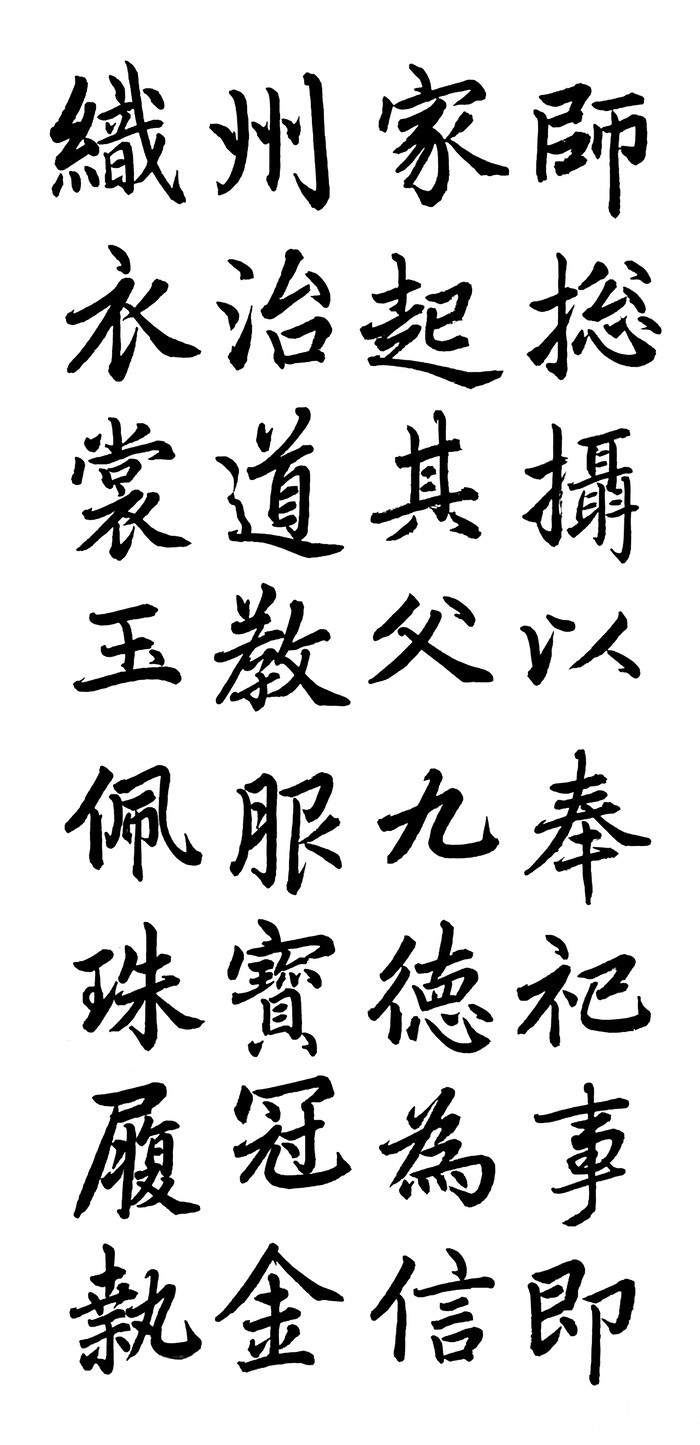 師捴攝以奉祀事即
家起其父九德為信
州治道教服寶冠金
織衣裳玉佩珠履執